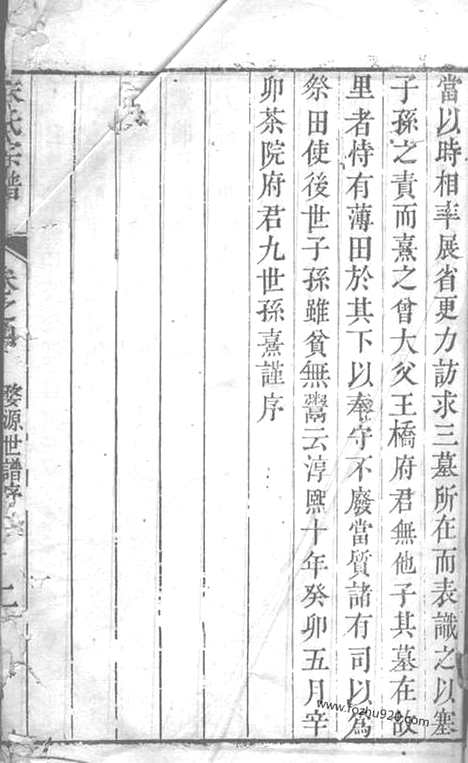 當以時相率展省更力訪求三墓所在而表識之以塞
子孫之責而熹之曾大父王橋府君無他子其墓在故
里者恃有薄田於其下以奉守不廢當質諸有司以為
祭田使後世子孫雖貧無鬻云淳熙十年癸卯五月辛
卯茶院府君九世孫熹謹序
氏宗譜
卷之
婺源世譜序
www.fozhu920.com